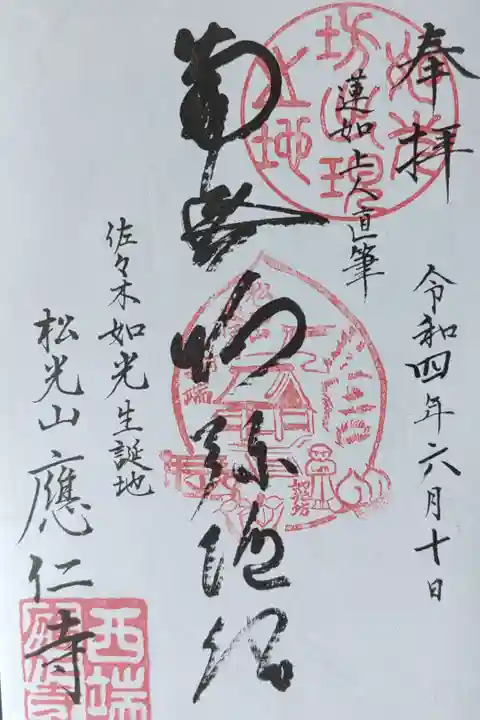 奉拝
令和四年六月十日
蓮如上人直筆
南无阿弥陀佛
佐々木如光生誕地
松光山應仁寺
西端